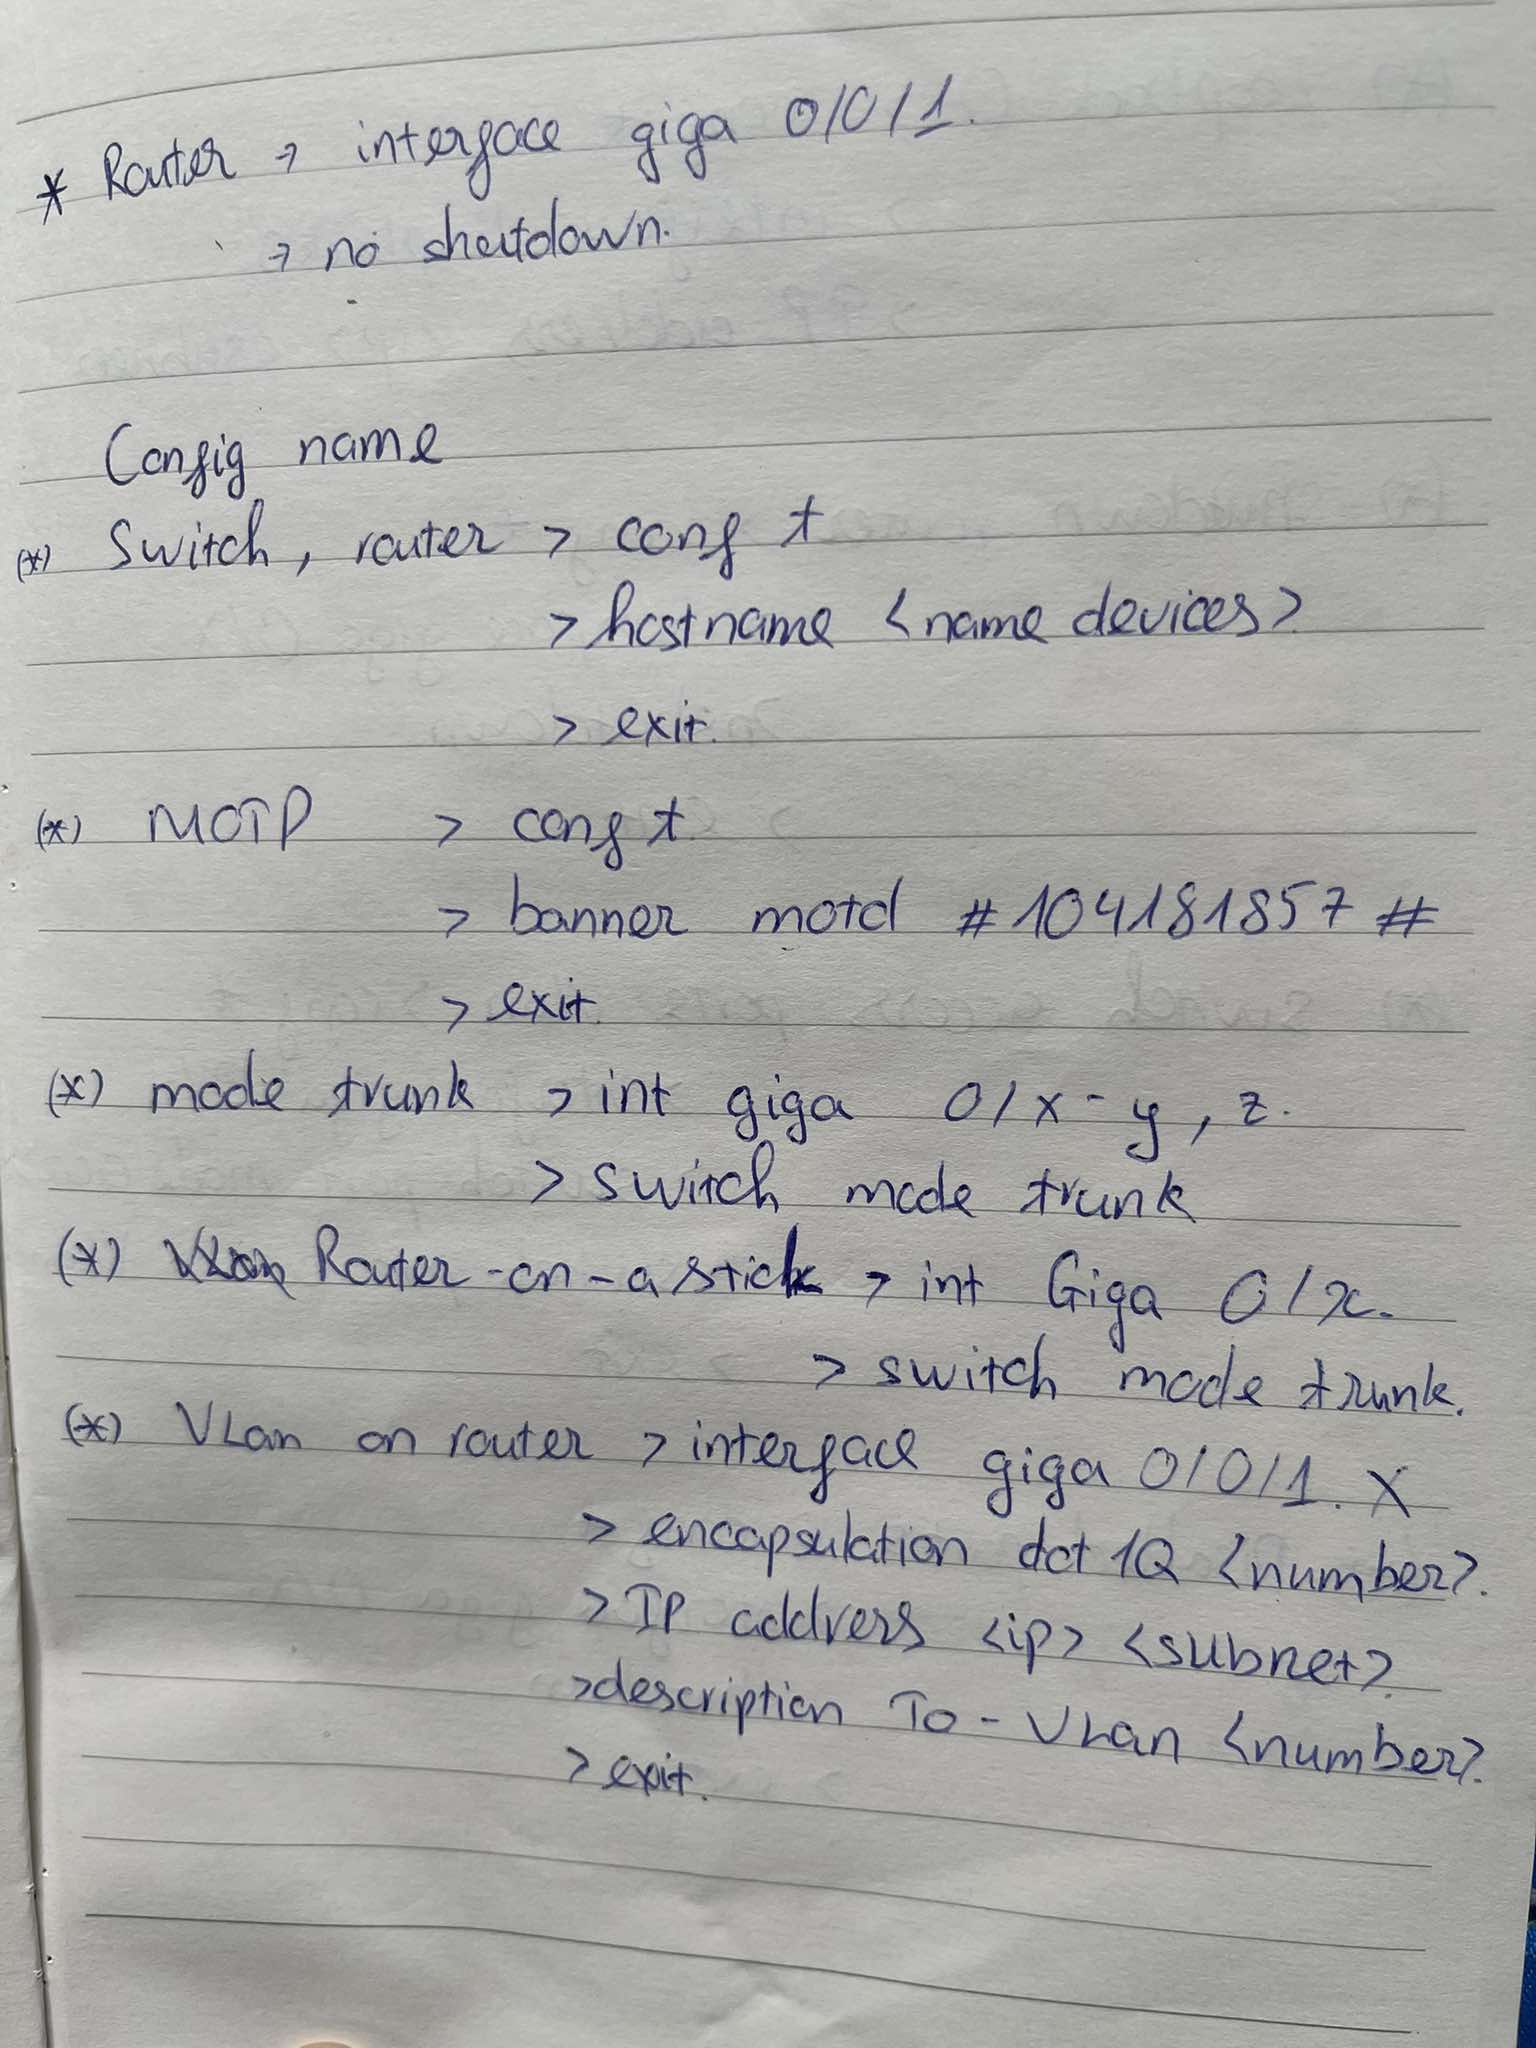 * Router → interface giga 0/0/1.
→ no shutdown.
Config name
(*) Switch, router > conf t
> hostname <name devices>
> exit.
(*) MOTD > conf t
> banner motd #104181857#
> exit.
(*) mode trunk > int giga 0/x-y, z.
> switch mode trunk
(*) Router-on-a stick > int Giga 0/x.
> switch mode trunk.
(*) VLan on router > interface giga 0/0/1.X
> encapsulation dot 1Q <number>.
> IP address <ip> <subnet>
> description To - VLan <number>.
> exit.